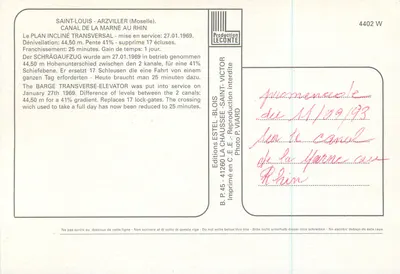 SAINT-LOUIS - ARZVILLER (Moselle).
CANAL DE LA MARNE AU RHIN
Le PLAN INCLINÉ TRANSVERSAL - mise en service: 27.01.1969.
Dénivellation: 44,50 m. Pente 41% - supprime 17 écluses.
Franchissement: 25 minutes. Gain de temps: 1 jour.
Der SCHRÄGAUFZUG wurde am 27.01.1969 in betrieb genommen
44,50 m Hohenunterschied zwischen den 2 kanale, für eine 41%
Schiefebene. Er ersetzt 17 Schleusen die eine Fahrt von einem
ganzen Tag erforderten - Heute braucht man 25 minuten dazu.
The BARGE TRANSVERSE-ELEVATOR was put into service on
January 27th 1969. Difference of levels between the 2 canals:
44,50 m for a 41% gradient. Replaces 17 lock gates. The crossing
wich used to take a full day has now been reduced to 25 minutes.
Production
LECONTE
4402 W
Editions ESTEL - BLOIS
B. P. 45 - 41260 LA CHAUSSEE-SAINT-VICTOR
Imprimé en C.E.E. - Reproduction interdite
Photo P. VIARD
promenade
du 11/09/93
sur le canal
de la Marne au
Rhin